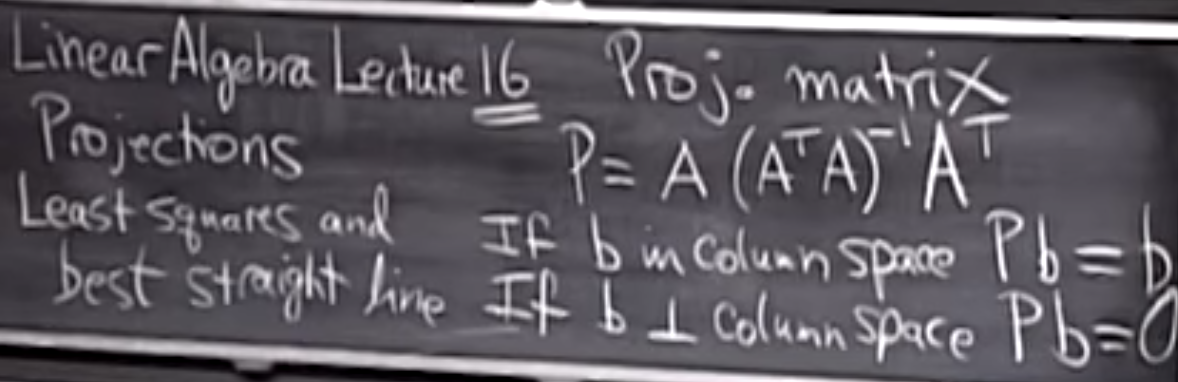 Linear Algebra Lecture 16
Projections
Least squares and
best straight line
Proj. matrix
P = A (AᵀA)⁻¹ Aᵀ
If b in column space Pb = b
If b ⊥ column space Pb = 0